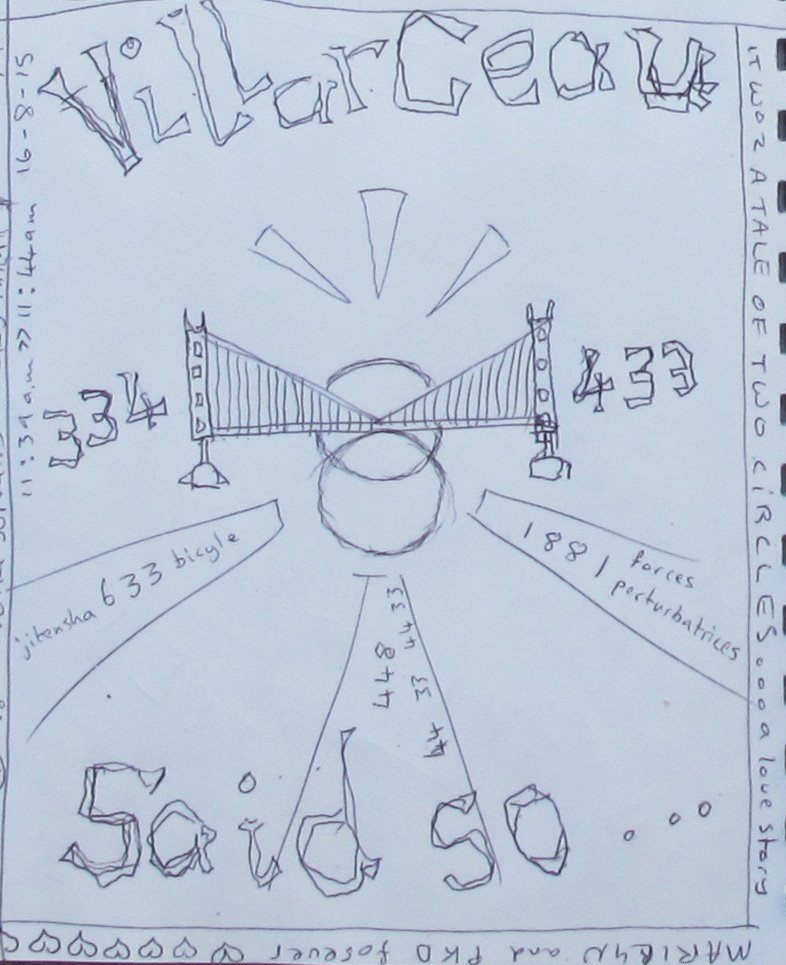 ViLLarCeau
334
433
jitensha 633 bicyle
1881 forces
porturbatrices
33 44 33 44
844
Said so ...
51-8-91 11:39am >> 11:44am
IT WOZ A TALE OF TWO CiRCLES... a love story
MARILYN and PKD forever